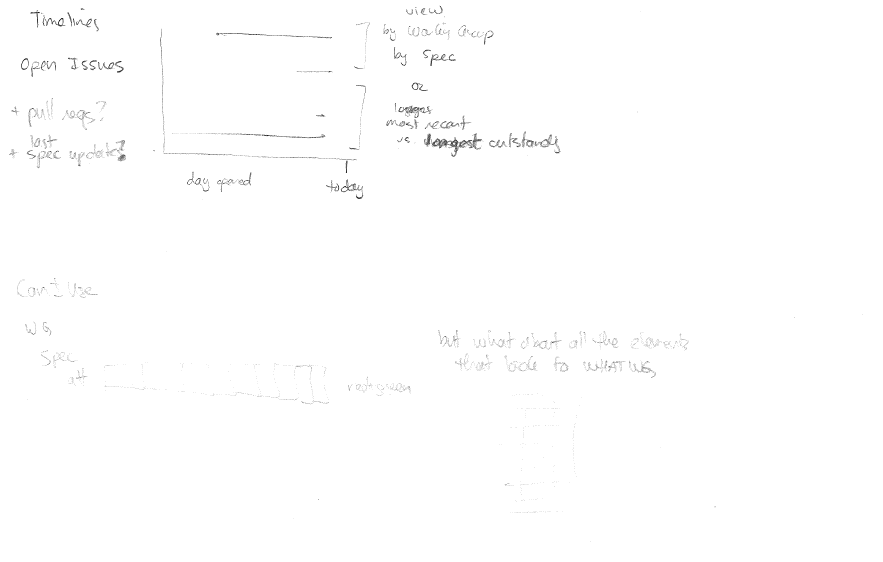 Timelines
Open Issues
+ pull reqs?
last
+ spec update?
day opened
today
view
by Working Group
by Spec
or
most recent
vs. longest outstanding
Can I Use
WG
Spec
att
red+green
but what about all the elements
that look to WHATWG